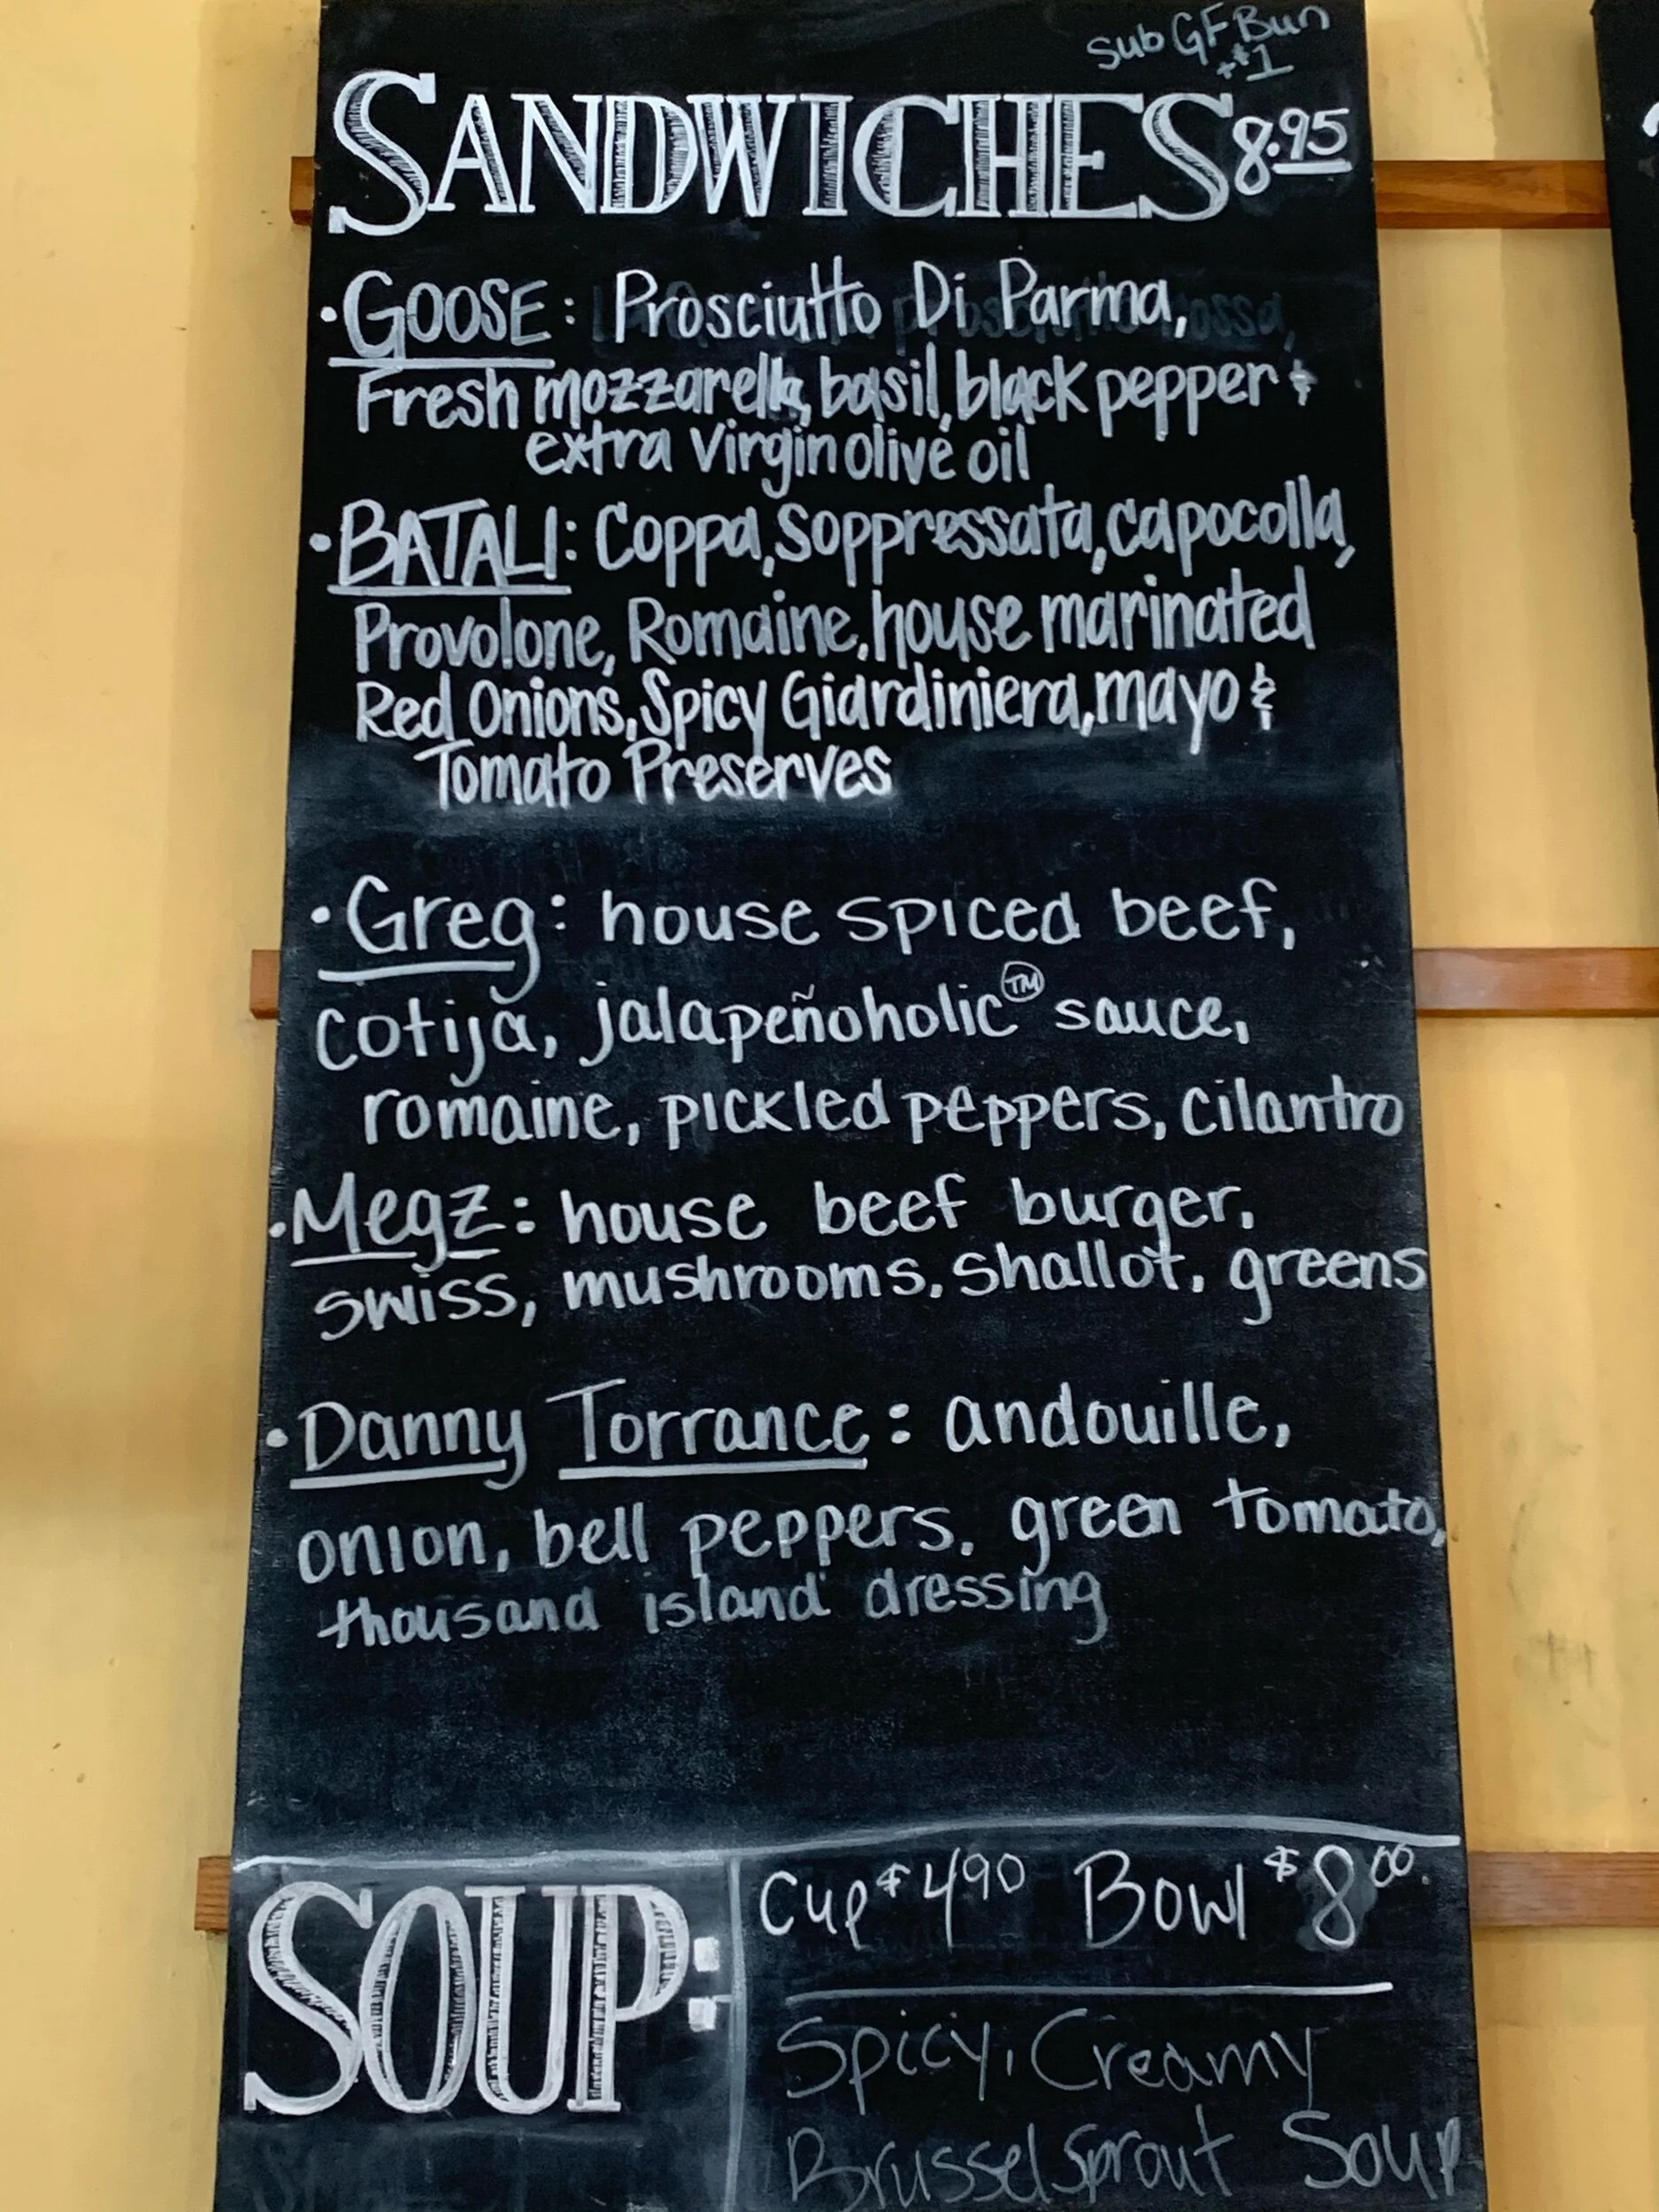 Sub GF Bun
+$1
SANDWICHES 8.95
• GOOSE: Prosciutto Di Parma,
Fresh mozzarella, basil, black pepper &
extra virgin olive oil
• BATALI: Coppa, Soppressata, capocolla,
Provolone, Romaine, house marinated
Red Onions, Spicy Giardiniera, mayo &
Tomato Preserves
• Greg: house spiced beef,
cotija, jalapeñoholic™ sauce,
romaine, pickled peppers, cilantro
• Megz: house beef burger,
swiss, mushrooms, shallot, greens
• Danny Torrance: andouille,
onion, bell peppers, green tomato,
thousand island dressing
SOUP:
Cup $4.90 Bowl $8.00
Spicy, Creamy
Brussel Sprout Soup